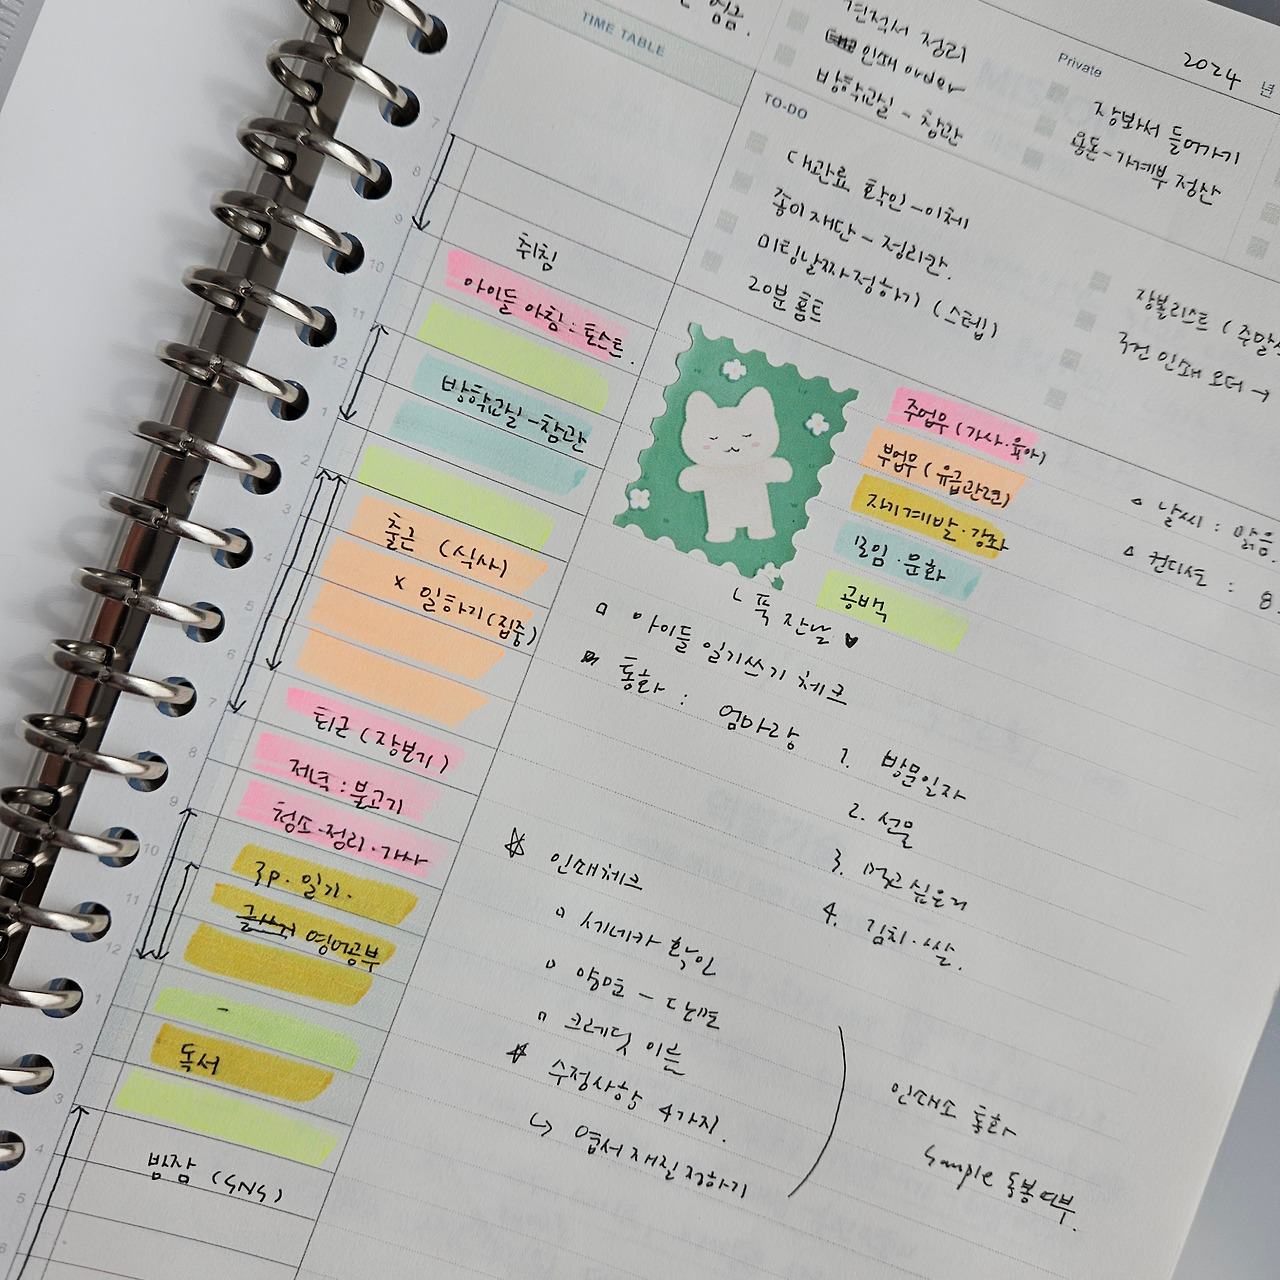 TIME TABLE
견적서 정리
인쇄 order
방학교실 - 참관
Private
2024 년
장봐서 들어가기
용돈 - 가계부 정산
TO-DO
대관료 확인 - 이체
종이재단 - 정리칸.
미팅날짜 정하기 (스텝)
20분 홈트
장볼리스트 (주말
인쇄 오더 →
7
8
9
취침
10
아이들 아침 : 토스트.
11
12
방학교실 - 참관
1
2
3
출근 (식사)
4
x 일하기 (집중)
5
6
7
퇴근 (장보기)
8
저녁 : 불고기
9
청소·정리·가사
10
3p. 일기.
11
영어공부
12
1
-
2
독서
3
4
밤잠 (SNS)
5
6
주업무 (가사·육아)
부업무 (유급관련)
자기계발·강좌
모임·문화
공백
날씨 : 맑음.
컨디션 : 8.
ㄴ 푹 잔날 ♥
아이들 일기쓰기 체크
통화 : 엄마랑
1. 방문일자
2. 선물
3. 먹고싶은거
4. 김치·쌀.
☆ 인쇄체크
세네카 확인
양면 - 단면
크레딧 이름
수정사항 4가지.
↳ 엽서 재질 정하기
인쇄소 통화
Sample 동봉여부.